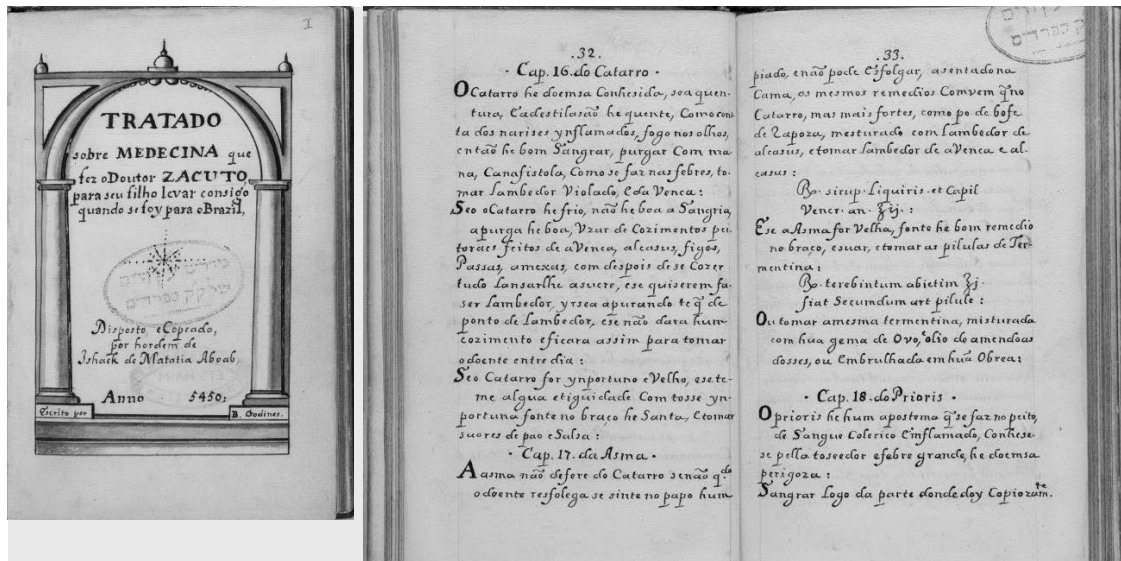 1
TRATADO
sobre MEDECINA que
fez oDoutor ZACUTO,
para seu filho levar consigo
quando se foy para oBrazil,
Disposto, eCopeado,
por hordem de
Ishack de Matatia Aboab,
Anno 5450:
Escrito por B. Godines.
.32.
Cap. 16. do Catarro
OCatarro he doemsa Conhesida, sea quen-
tura, Eadestilasaõ he quente, Como
ta dos narises ynflamados, fogo nos olhos,
entaõ he bom Sangrar, purgar Com ma
na, Canafistola, Como se faz nas febres, to-
mar Lambedor Violado, Eda Venca:
Seo oCatarro he frio, naõ he boa a Sangria,
apurga he boa, Vzar de Cozimentos pei
toraes feitos de aVenca, alcasus, figos,
Passas, amexas, com despois de se Cozer
tudo Lansarlhe asucre, ese quiserem fa-
ser Lambedor, yrsea apurando te q̃ de
ponto de Lambedor, ese naõ dara hum
cozimento eficara assim para tomar
odoente entre dia:
Seo Catarro for ynportuno eVelho, esete-
me algua etiguidade Com tosse yn-
portuna fonte no braço he Santa, Etomar
suores de pao eSalsa:
Cap. 17. da Asma
Aasma naõ defere do Catarro senaõ q.do
odoente resfolega se sinte no papo hum
.33.
piado, enaõ pode Esfolgar, asentado na
Cama, os mesmos remedios Comvem q̃ no
Catarro, mas mais fortes, como po de bofe
de Rapoza, mesturado com Lambedor de
alcasus, etomar Lambedor de aVenca e al-
casus:
Ro. sirup. Liquiris. et Capil
Vener. an. ℥ij.:
Ese aAsma for Velha, fonte he bom remedio
no braço, esuar, etomar as pilulas de Ter-
mentina:
Ro. terebintum abietim ℥j.
fiat Secumdum art pilule:
Ou tomar amesma termentina, misturada
com hũa gema de Ovo, olio de amendoas
dosses, ou Embrulhada em hũa Obrea:
Cap. 18. do Prioris
Oprioris he hum apostema q̃ se faz no peito,
de Sangue Colerico Emflamado, Conhese-
se pella toseedor efebre grande, he doemsa
perigoza:
Sangrar Logo da parte donde doy Copiozam.te